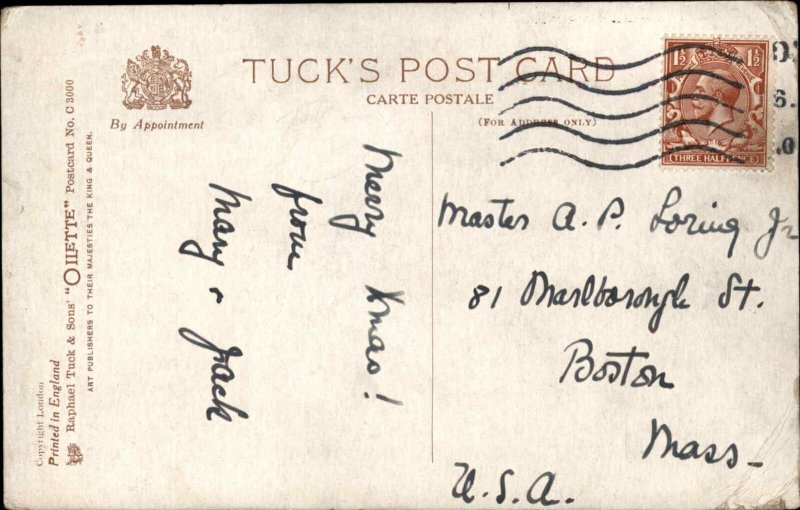 TUCK'S POST CARD
CARTE POSTALE
(FOR ADDRESS ONLY)
By Appointment
Copyright London
Printed in England
Raphael Tuck & Sons' "OILETTE" Postcard No. C 3000
ART PUBLISHERS TO THEIR MAJESTIES THE KING & QUEEN.
Merry Xmas!
from
Mary & Jack
1½ 1½
THREE HALFPENCE
Master A. P. Loring Jr
81 Marlborough St.
Boston
Mass
U.S.A.